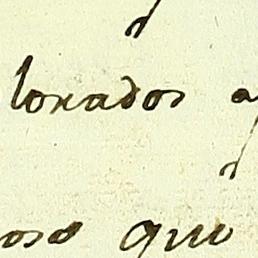 lorados a
oso que